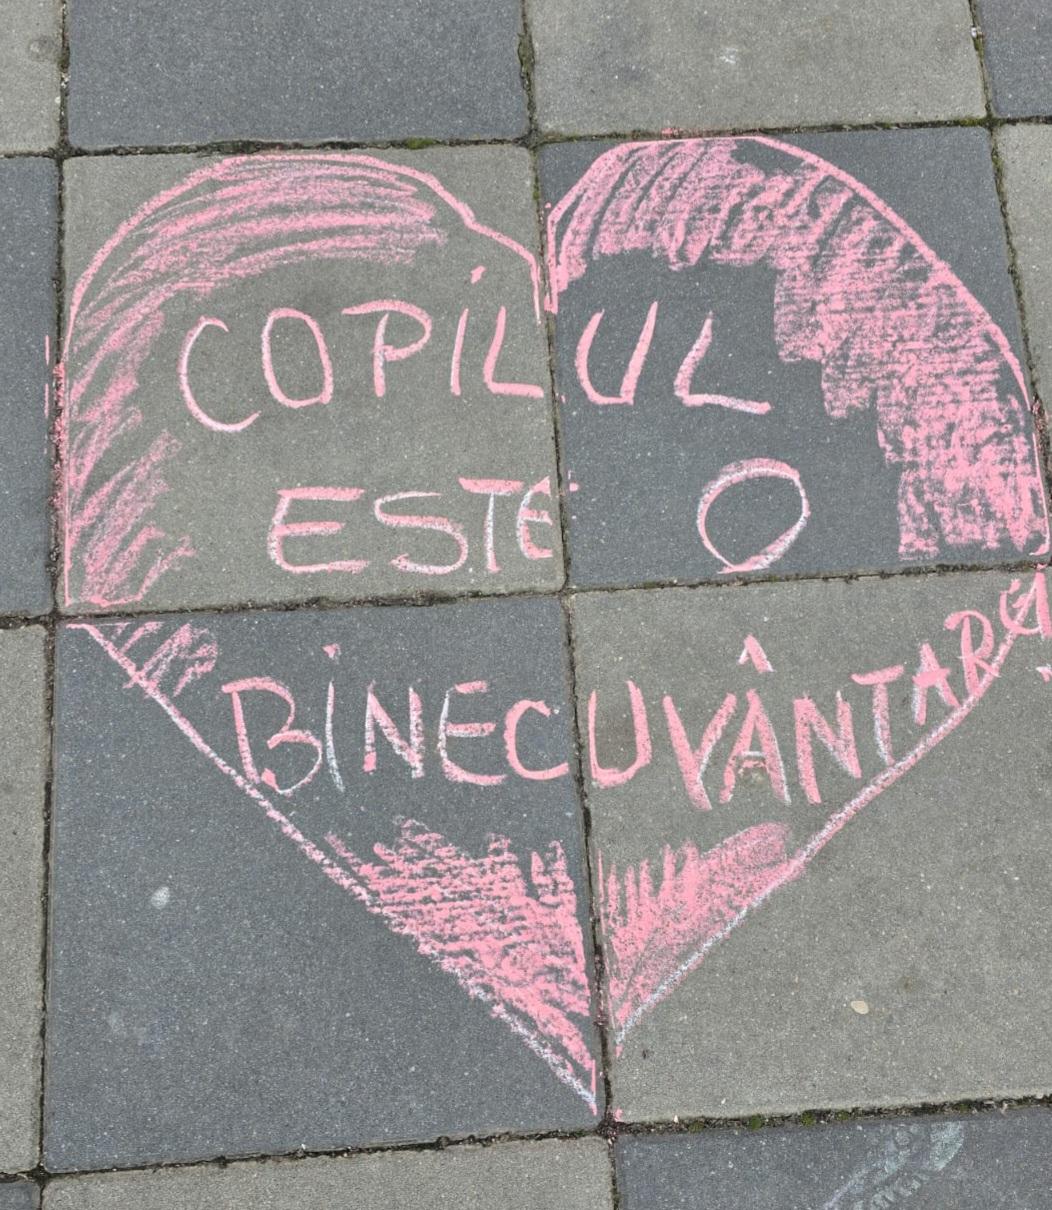 COPILUL
ESTE O
BINECUVÂNTARE